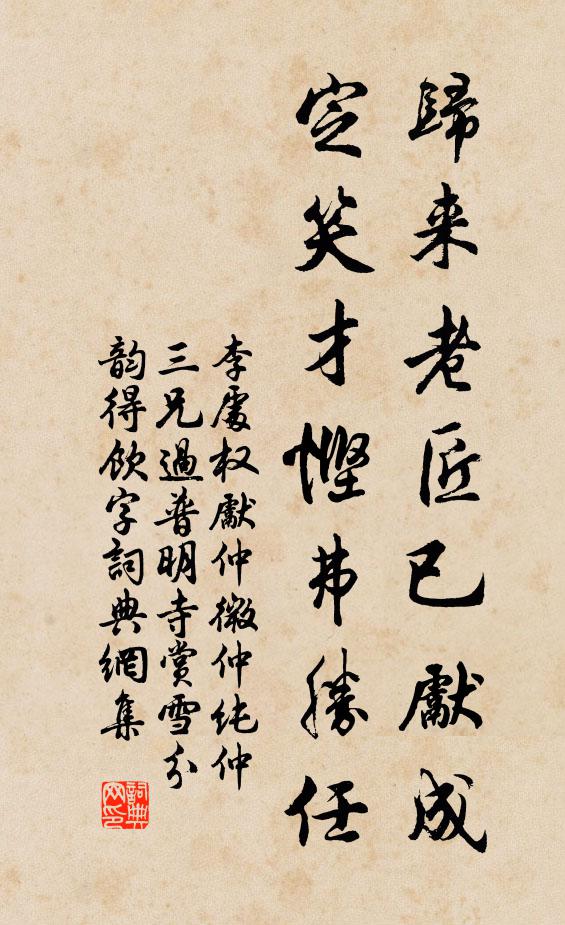 歸来老匠已獻成
定笑才慳弗勝任
李處权獻仲微仲纯仲
三兄過普明寺賞雪分
韵得飲字詞典網集
詞典
网印